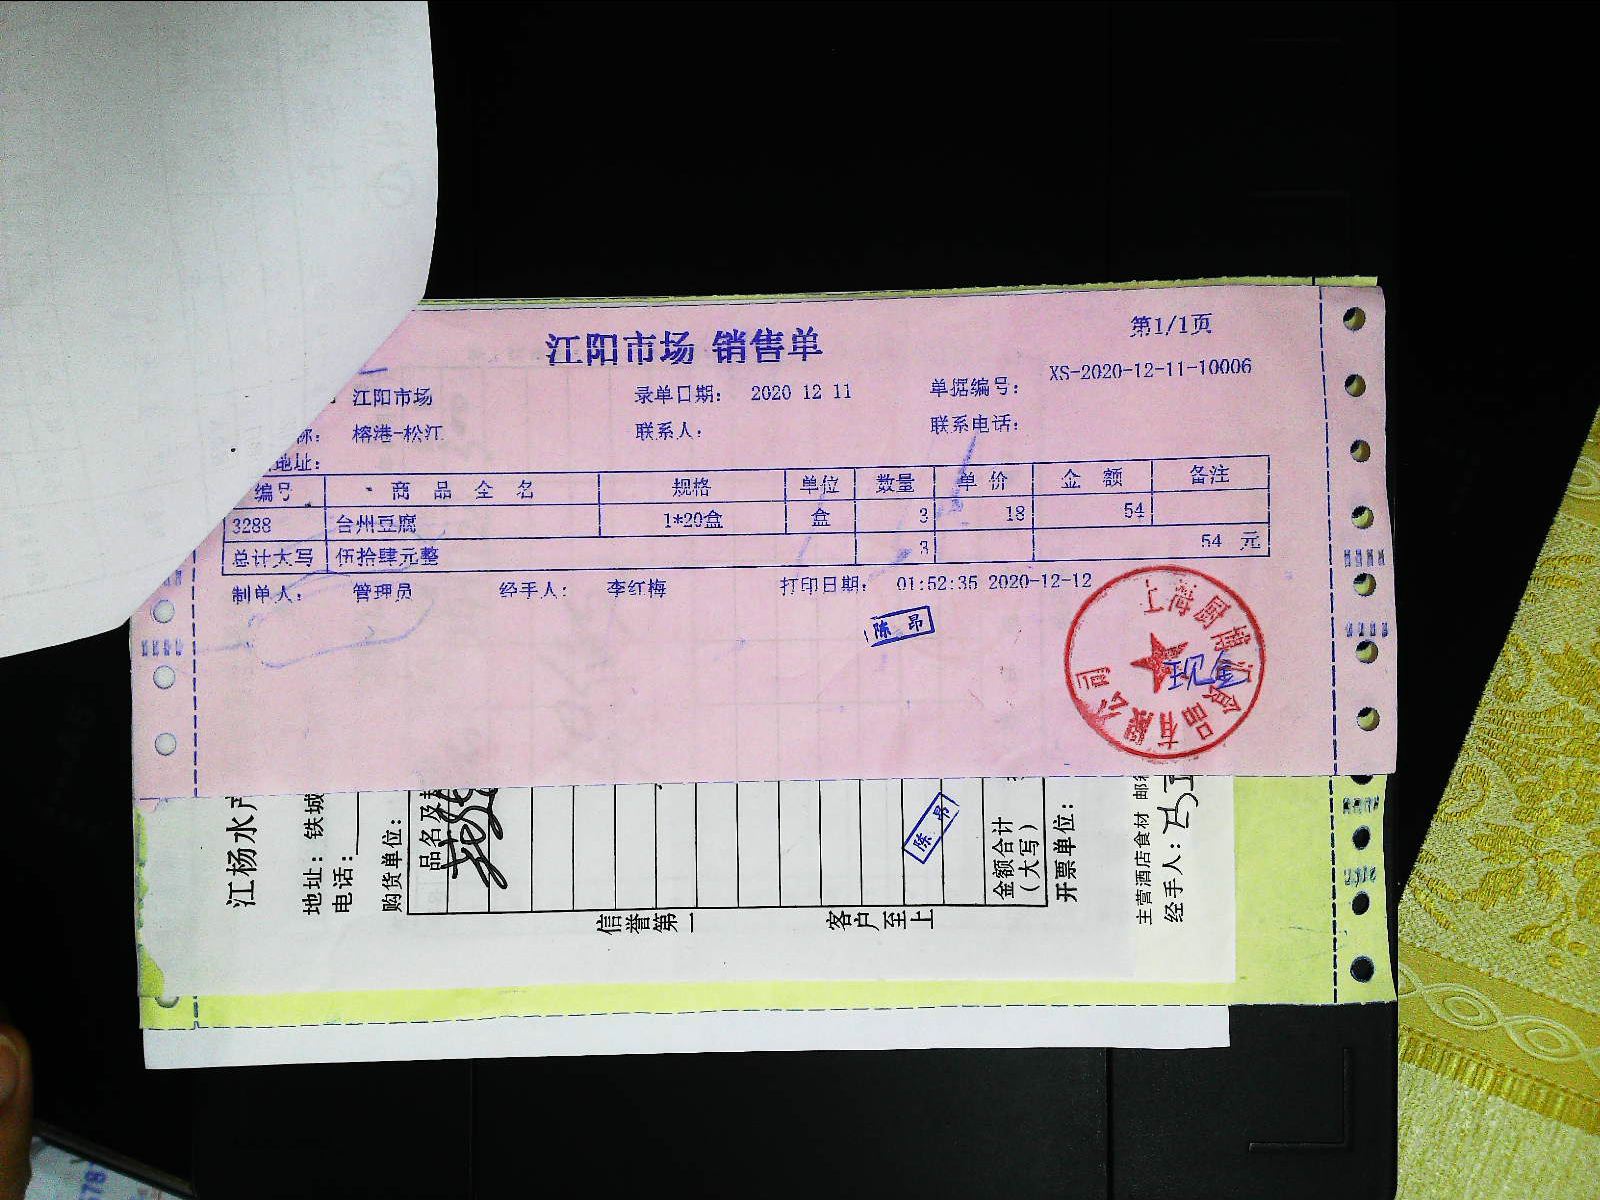 江阳市场 销售单
第1/1页
江阳市场 录单日期: 2020 12 11 单据编号: XS-2020-12-11-10006
称: 榕港-松江 联系人: 联系电话:
地址:
编号 商品全名 规格 单位 数量 单价 金额 备注
3288 台州豆腐 1*20盒 盒 3 18 54
总计大写 伍拾肆元整 3 54 元
制单人: 管理员 经手人: 李红梅 打印日期: 01:52:35 2020-12-12
陈昂
上海厨博汇食品有限公司
现金
江杨水产
地址: 铁城
电话:
购货单位:
品名及规
陈昂
金额合计
(大写)
开票单位:
主营酒店食材 邮
经手人:
信誉第一
客户至上
578